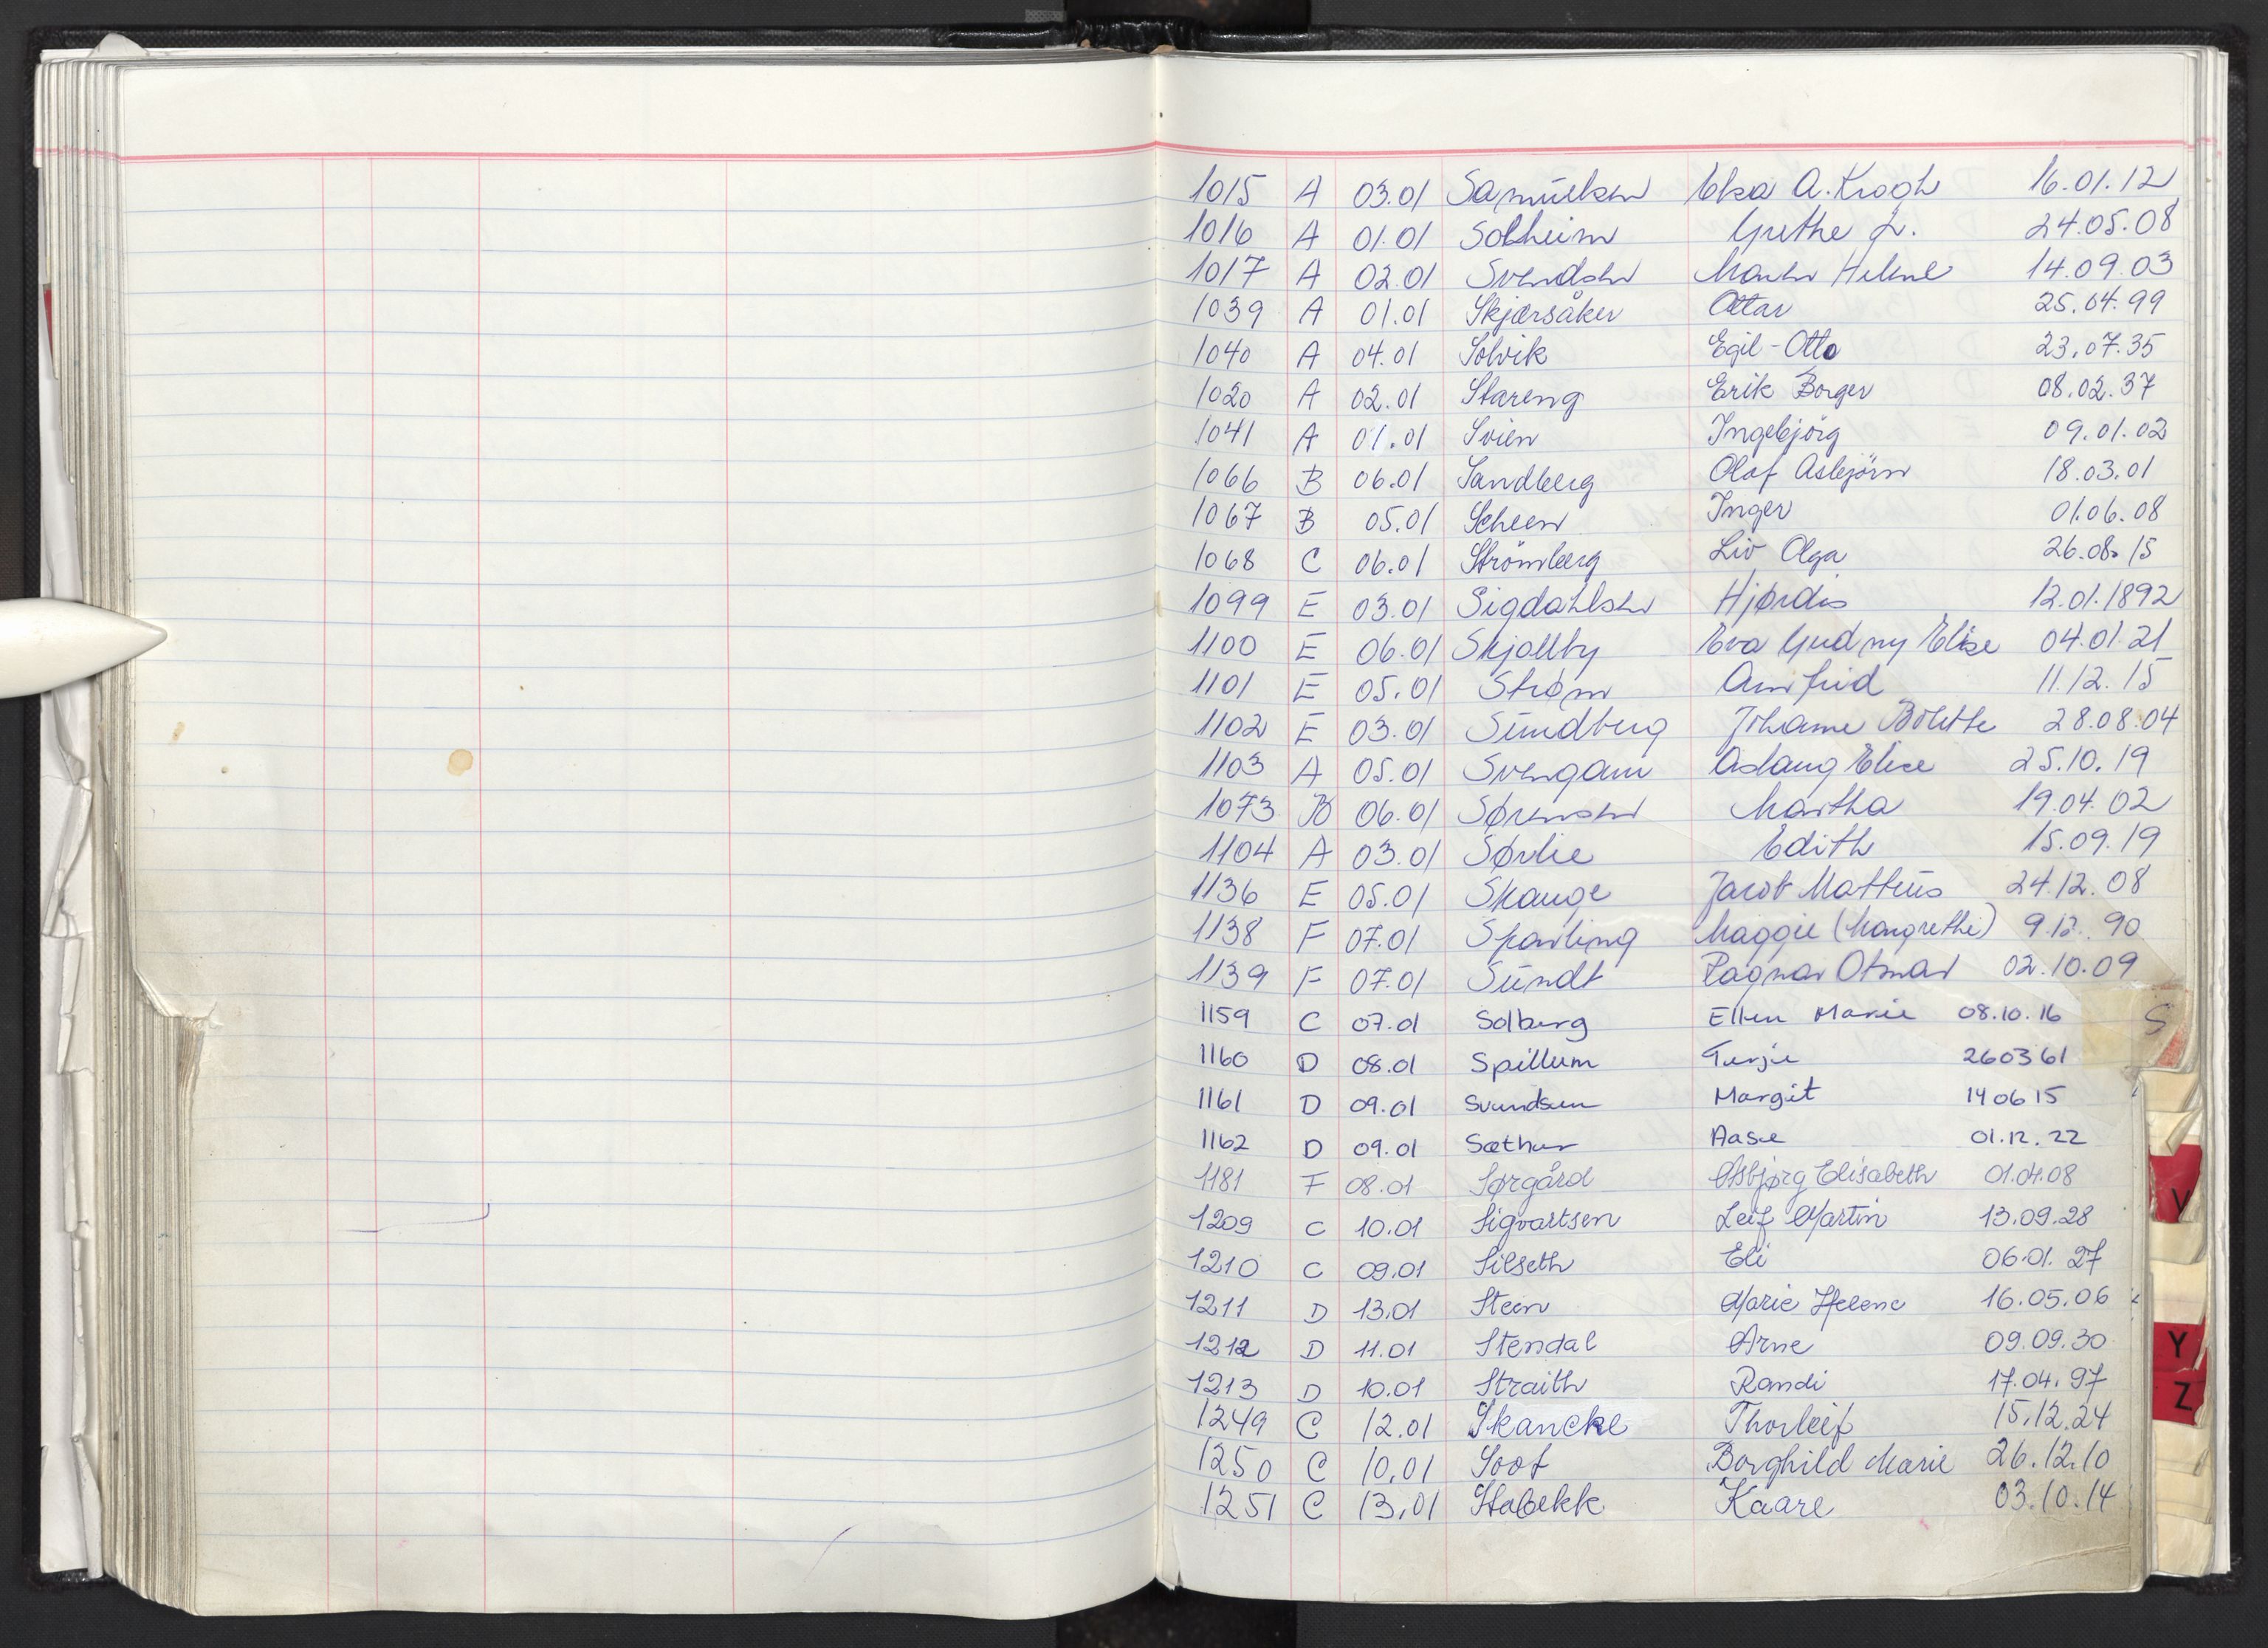 1015 A 03.01 Samuelsen Elsa A. Krogh 16.01.12
1016 A 01.01 Solheim Grethe L. 24.05.08
1017 A 02.01 Svendsen Maren Helene 14.09.03
1039 A 01.01 Skjærsåker Ottar 25.04.99
1040 A 04.01 Solvik Egil-Otto 23.07.35
1020 A 02.01 Stareng Erik Borger 08.02.37
1041 A 01.01 Svien Ingebjörg 09.01.02
1066 B 06.01 Sandberg Olaf Asbjörn 18.03.01
1067 B 05.01 Scheen Inger 01.06.08
1068 C 06.01 Strömberg Liv Olga 26.08.15
1099 E 03.01 Sigdahlsen Hjørdis 12.01.1892
1100 E 06.01 Skjollby Eva Gudny Elise 04.01.21
1101 E 05.01 Strøm Arnfrid 11.12.15
1102 E 03.01 Sundberg Johanne 28.08.04
1103 A 05.01 Svengam Aslaug Elise 25.10.19
1073 B 06.01 Sørensen Martha 19.04.02
1104 A 03.01 Sørlie Edith 15.09.19
1136 E 05.01 Skauge Jacob Matteus 24.12.08
1138 F 07.01 Sparling Maggie (Margrethe) 9.12.90
1139 F 07.01 Sundt Ragnar Otmar 02.10.09
1159 C 07.01 Solberg Ellen Marie 08.10.16
S
1160 D 08.01 Spillum Terje 260361
1161 D 09.01 Svendsen Margit 140615
1162 D 09.01 Sæther Aase 01.12.22
1181 F 08.01 Sørgård Asbjørg Elisabeth 01.04.08
V
1209 C 10.01 Sigvartsen Leif Martin 13.09.28
1210 C 09.01 Silseth Eli 06.01.27
1211 D 13.01 Steen Marie Helene 16.05.06
1212 D 11.01 Stendal Arne 09.09.30
Y
1213 D 10.01 Straith Randi 17.04.97
Z
1249 C 12.01 Skancke Thorleif 15.12.24
1250 C 10.01 Soot Borghild Marie 26.12.10
1251 C 13.01 Stabekk Kaare 03.10.14